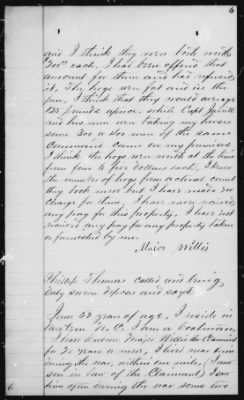 6
and I think they were both worth
200$ each. I had been offered that
amount for them and had refused
it. The hogs were fat and in the
pen, I think that they would average
125 pounds apiece, while Capt
and his men were taking my horses
some 30 or 40 men of the same
Command came on my premises
I think the hogs were worth at the time
from four to five dollars each, I know
the number of hogs from actual count
they took more but I have made no
charge for them, I have never received
any pay for this property, I have not
received any pay for any property taken
or furnished by me.
Major Willis
Philip Thomas called and being
duly sworn deposes and says
I am 32 years of age, I reside in
N.C. I am a boatman,
I have known Major Willis the Claimant
for 20 years or more, I lived near him
during the war, within one mile, (I am
son in law of the Claimant) I saw
him often during the war some two
6